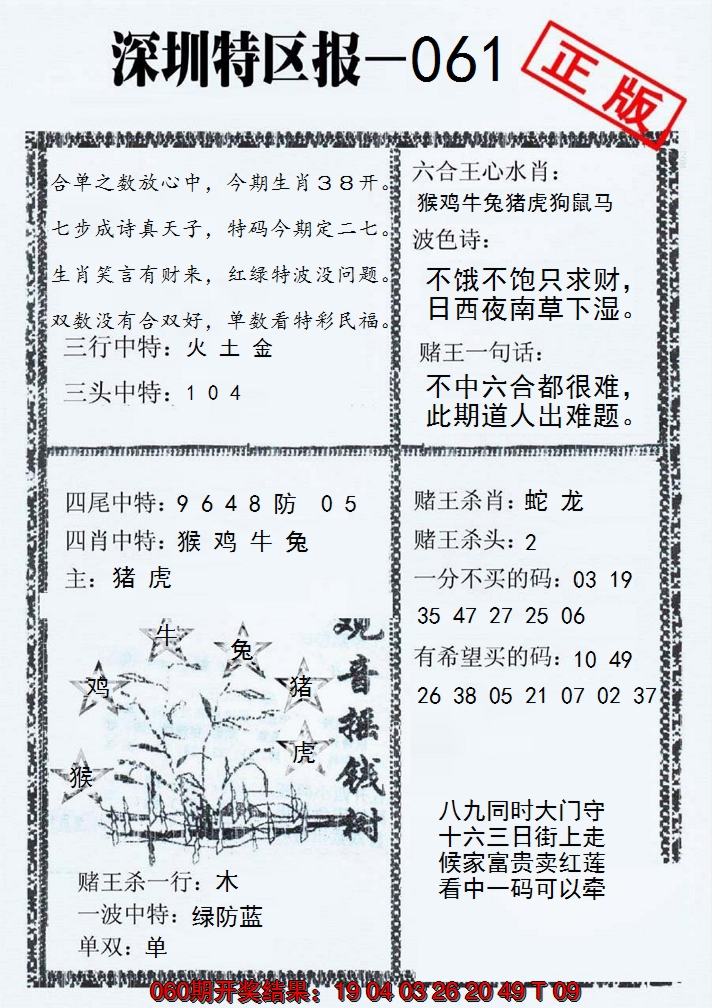 深圳特区报－061
正版
合单之数放心中，今期生肖３８开。
七步成诗真天子，特码今期定二七。
生肖笑言有财来，红绿特波没问题。
双数没有合双好，单数看特彩民福。
三行中特：火 土 金
三头中特：1 0 4
六合王心水肖：
猴鸡牛兔猪虎狗鼠马
波色诗：
不饿不饱只求财，
日西夜南草下湿。
赌王一句话：
不中六合都很难，
此期道人出难题。
四尾中特：9 6 4 8 防 0 5
四肖中特：猴 鸡 牛 兔
主：猪 虎
牛
兔
鸡
猪
虎
猴
观音摇钱树
赌王杀一行：木
一波中特：绿防蓝
单双：单
赌王杀肖：蛇 龙
赌王杀头：2
一分不买的码：03 19
35 47 27 25 06
有希望买的码：10 49
26 38 05 21 07 02 37
八九同时大门守
十六三日街上走
候家富贵卖红莲
看中一码可以牵
060期开奖结果：19 04 03 26 20 49 T 09